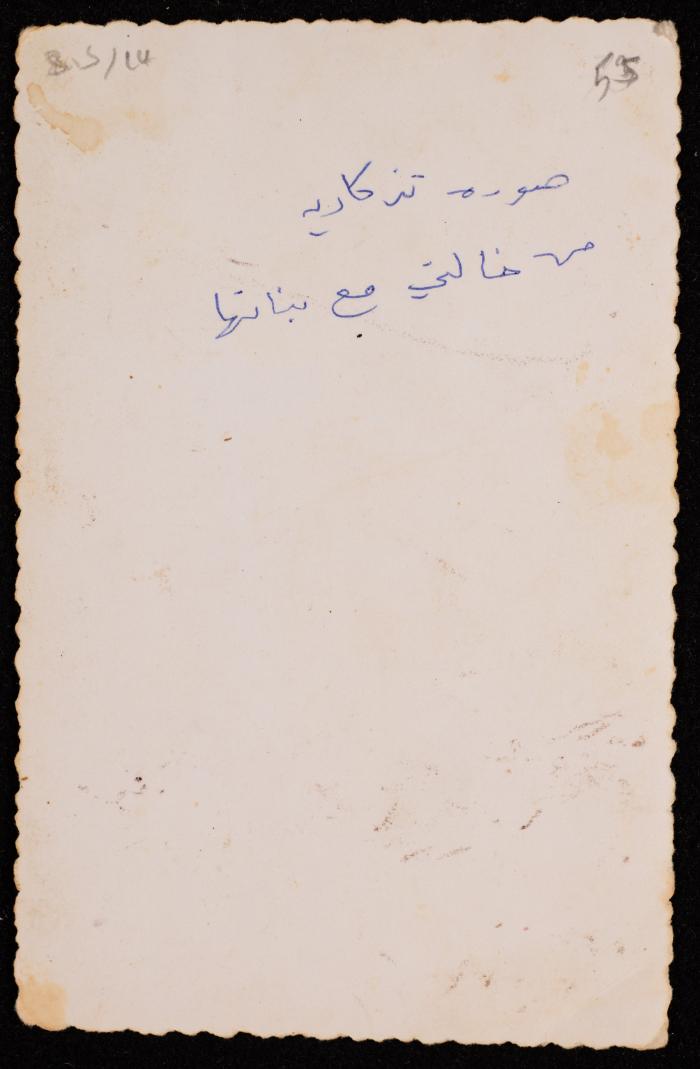 55
صوره تذكاريه
من خالتي مع بناتها